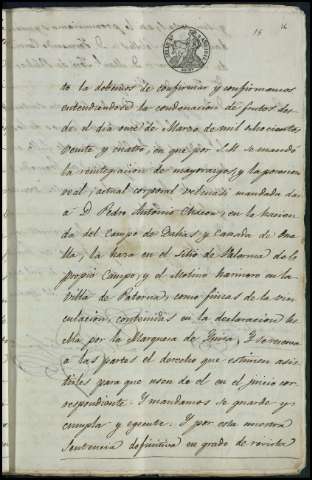 15
to la debemos de confirmar y confirmamos
entendiendose la condenacion de frutos des-
de el dia once de Marzo de mil ochocientos
veinte y cuatro, en que por S.M. se mandó
la reintegracion de mayorazgos, y la posesion
real, actual corporal velcuasi mandada dar
á D. Pedro Antonio Chacon, en la hereda
da del Campo de Duhas y Canada de
lla; la haza en el sitio de Paterna de lo
propio Campo, y el Molino harinero en la
Villa de Paterna, como fincas de la vin-
culacion, contenidas en la declaracion he-
cha por la Marquesa de Y reserva
a las partes el derecho que estimen asis-
tirles para que usen de el en el juicio cor-
respondiente. Y mandamos se guarde y
cumpla y egecute. Y por esta nuestra
Sentencia definitiva en grado de revista